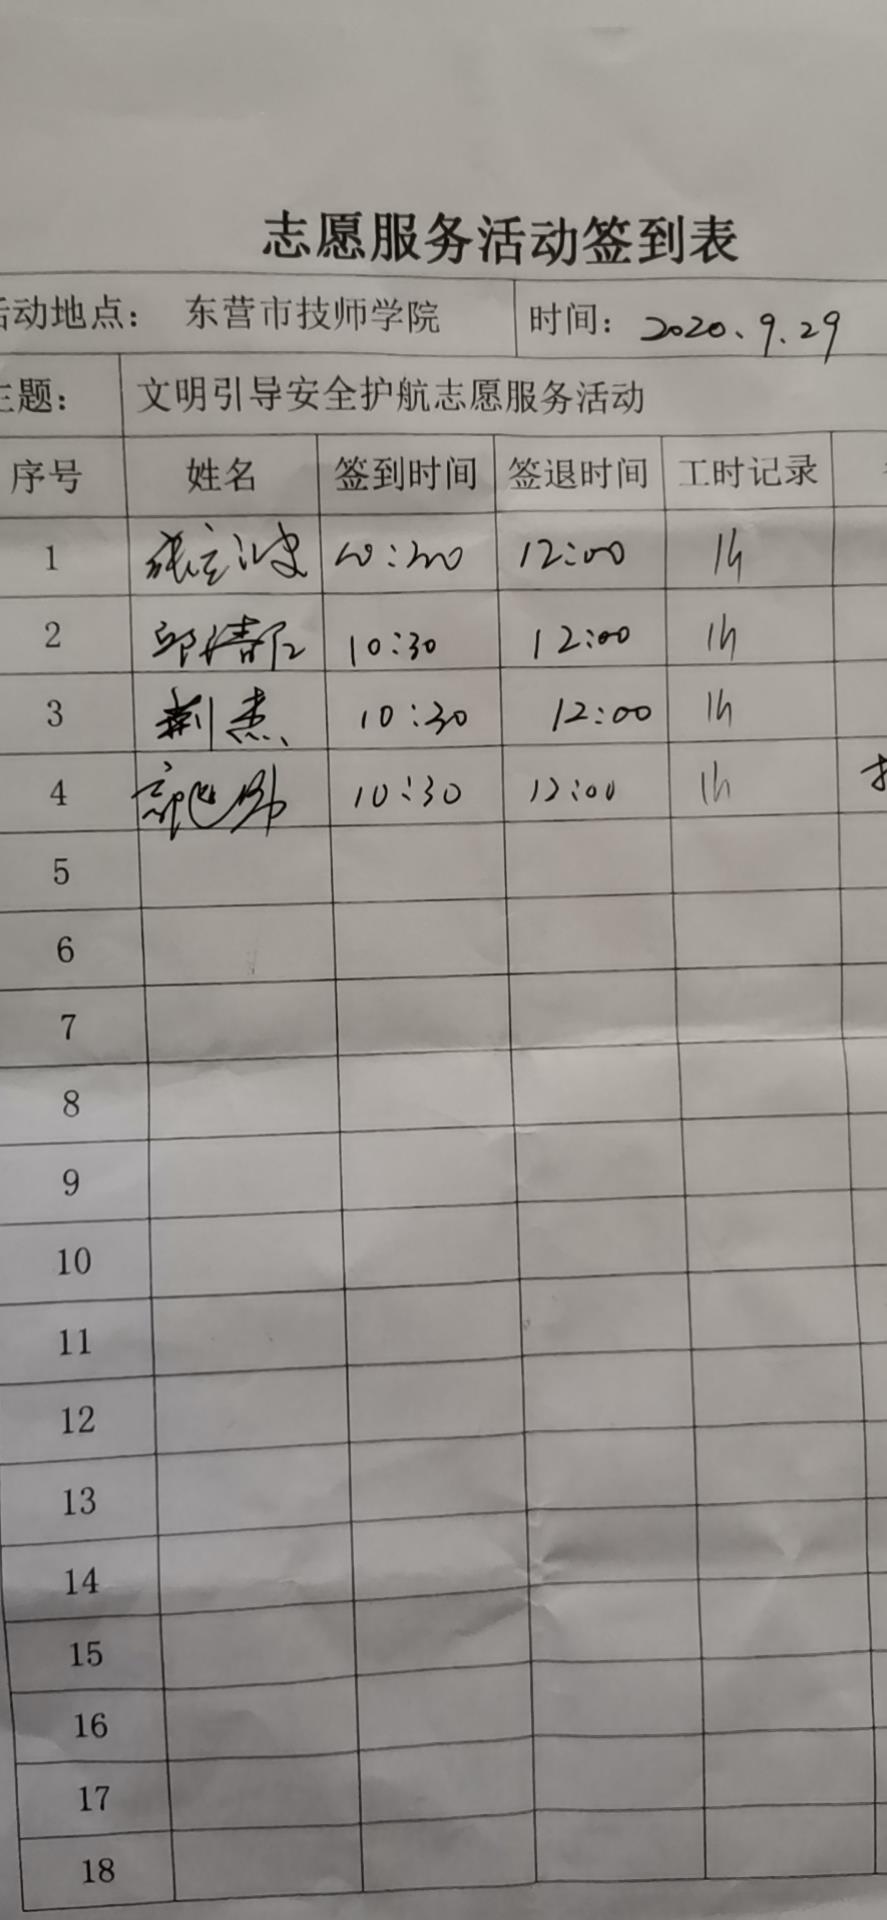 志愿服务活动签到表
活动地点： 东营市技师学院 时间：2020.9.29
主题： 文明引导安全护航志愿服务活动
序号 姓名 签到时间 签退时间 工时记录
1 10:30 12:00 1h
2 10:30 12:00 1h
3 荆杰 10:30 12:00 1h
4 10:30 12:00 1h
5
6
7
8
9
10
11
12
13
14
15
16
17
18